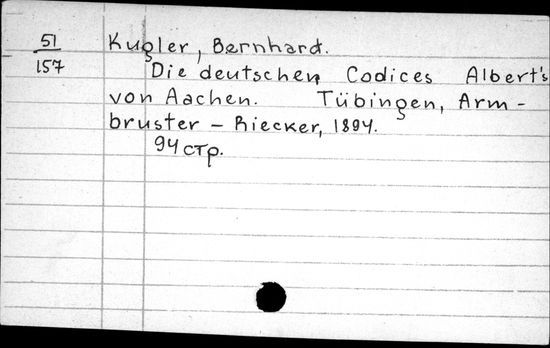 51
157
Kugler, Bernhard.
Die deutschen Codices Albert's
von Aachen. Tübingen, Arm-
bruster - Riecker, 1894.
94 стр.